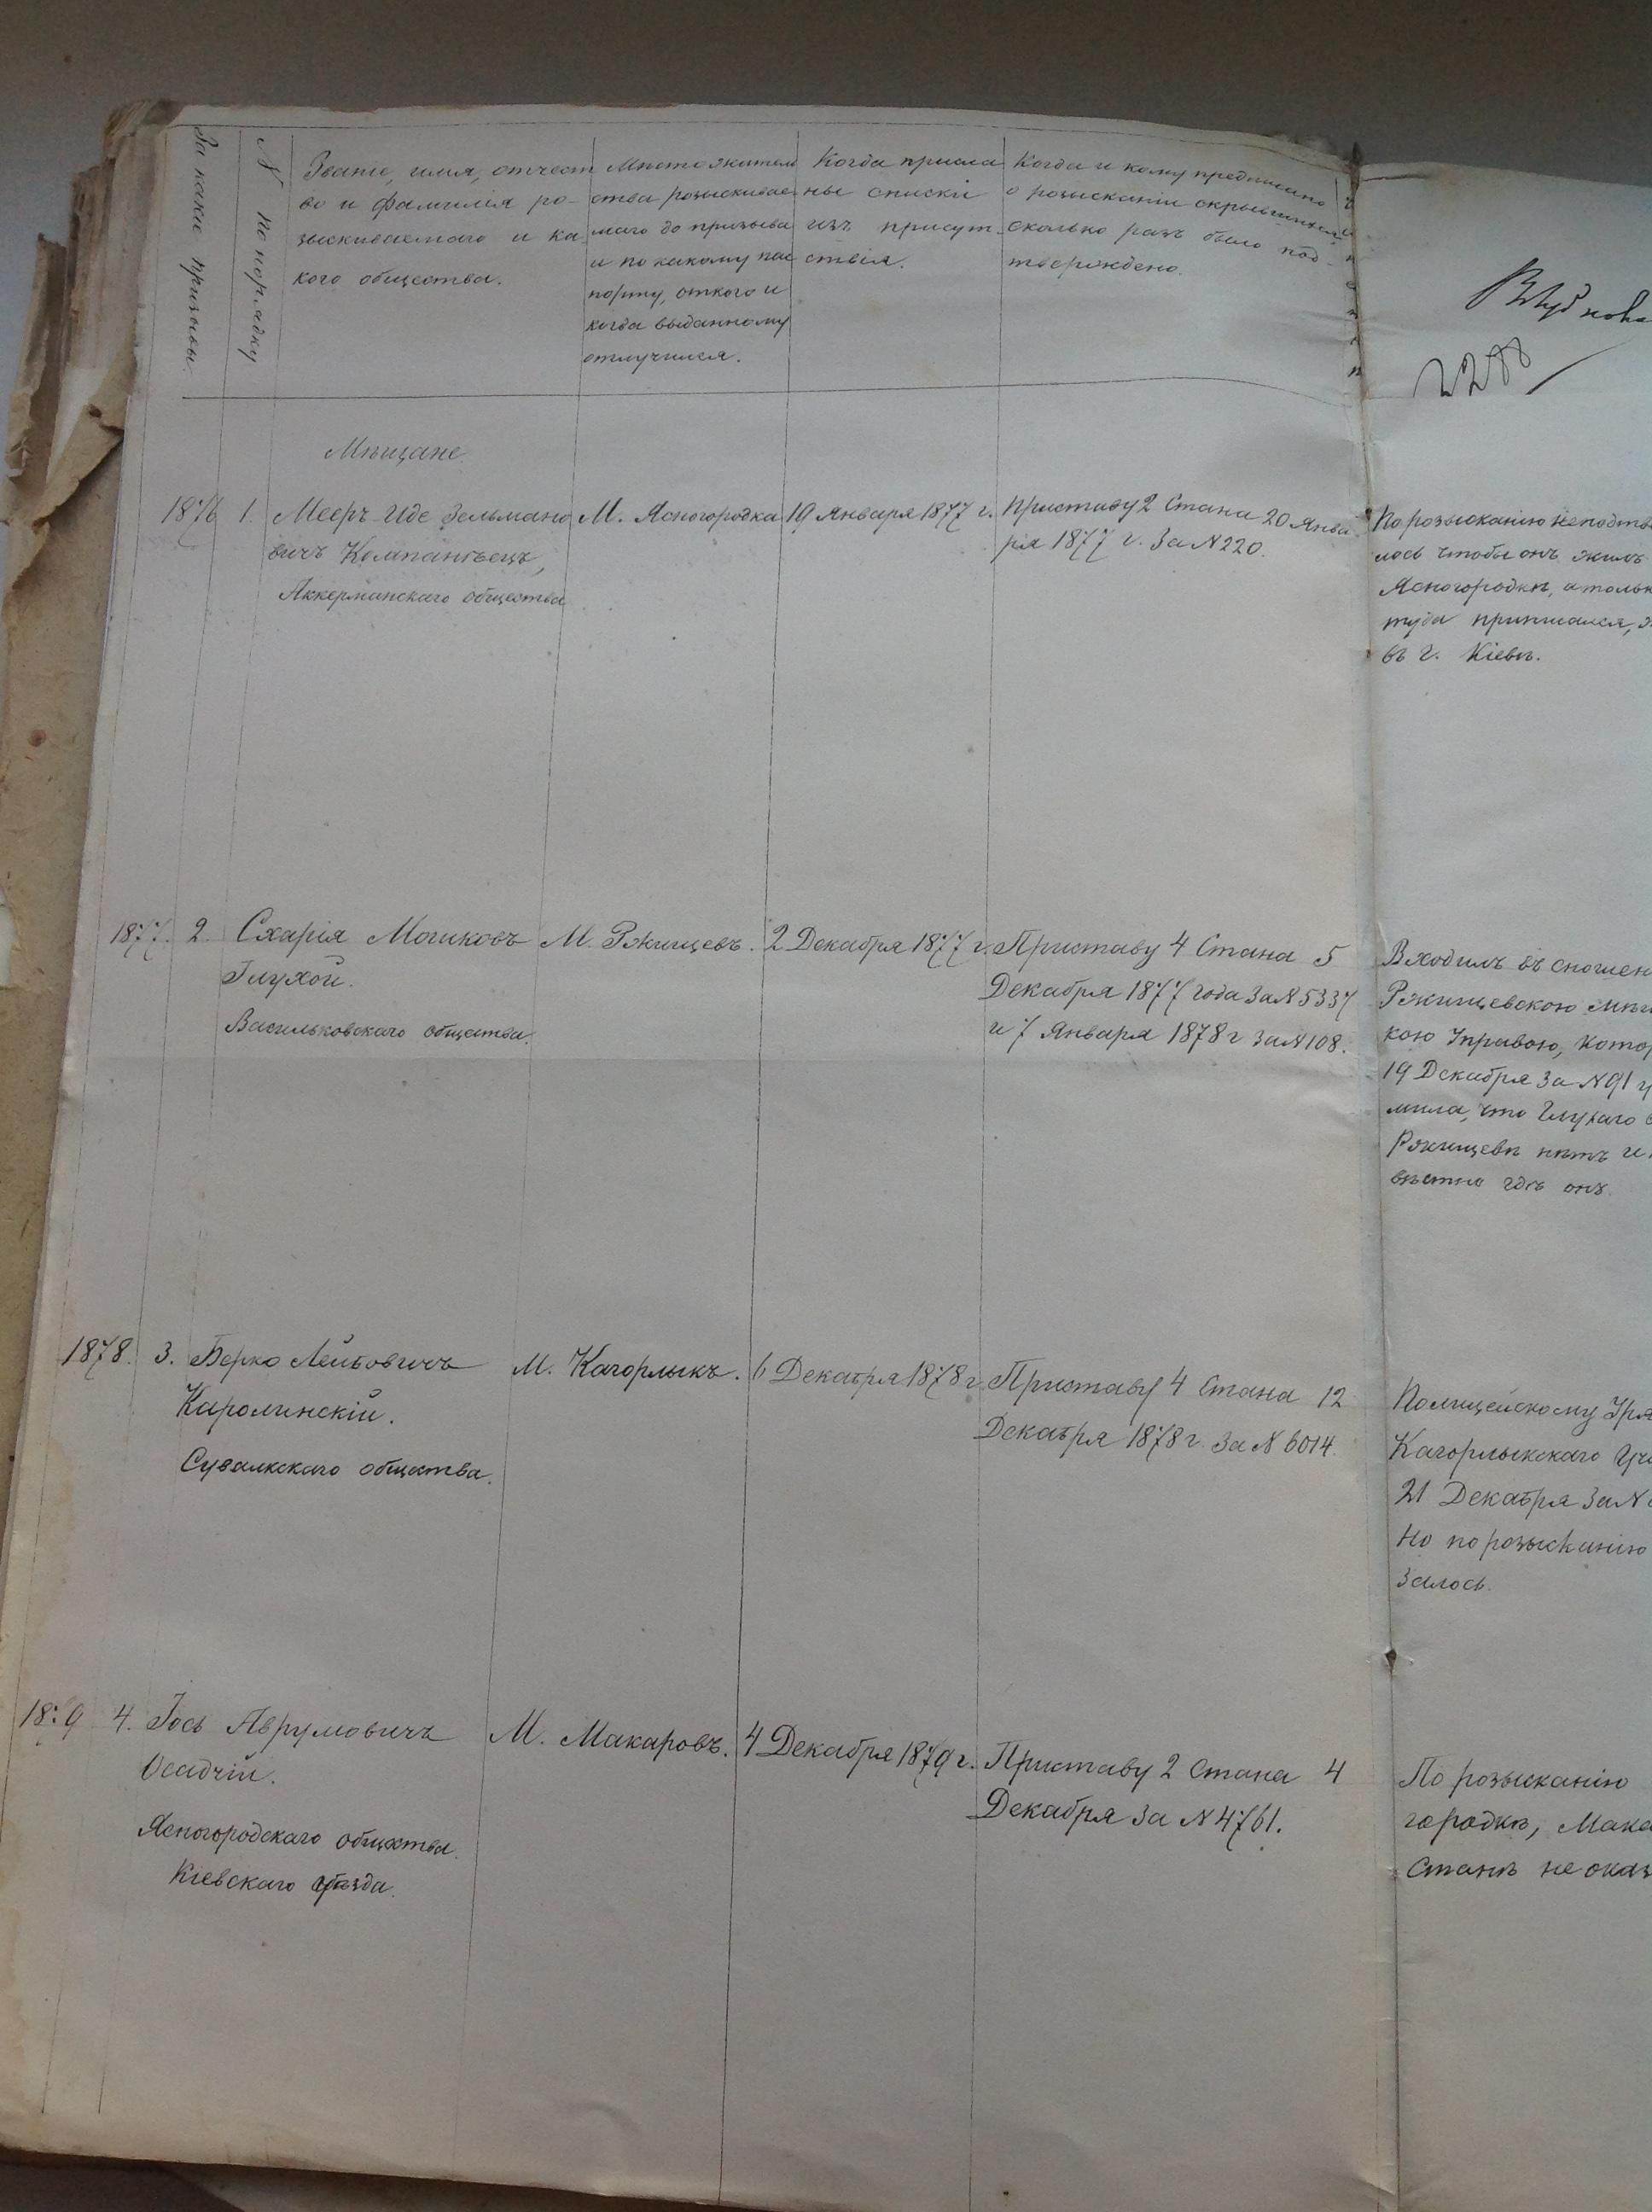 За какіе призывы.
№ по порядку
Званіе, имя, отчест
во и фамилія ро-
зыскиваемаго и ка-
кого общества.
Мѣстожитель
ства розыскивае
маго до призыва
и по какому пас
порту, откого и
когда выданному
отлучился.
Когда присла
ны списки
изъ присут-
ствія.
Когда и кому предписано
о розысканіи скрывшихся
сколько разъ было под-
тверждено.
2288
Мѣщане.
1876 1. Мееръ Иде Зельмано
вичъ Компанѣецъ,
Аккерманскаго общества
М. Ясногородка
19 Января 1877 г.
Приставу 2 Стана 20 Янва
ря 1877 г. За №220.
По розысканію неподтв
лось чтобы онъ жилъ
Ясногородкѣ, а тольк
туда приписался,
въ г. Кіевѣ.
1877. 2. Схарія Мошковъ
Глухой.
Васильковскаго общества.
М. Ржищевъ.
2 Декабря 1877 г.
Приставу 4 Стана 5
Декабря 1877 года За №5337
и 7 Января 1878 г За №108.
Входилъ въ сношен
Ржищевскою мѣщ
кою Управою, котор
19 Декабря За №91 у
мила, что Глухаго в
Ржищевѣ нѣтъ и
вѣстно гдѣ онъ.
1878. 3. Берко Лейбовичъ
Каролинскій.
Сувалкскаго общества.
М. Кагорлыкъ.
6 Декабря 1878 г.
Приставу 4 Стана 12
Декабря 1878 г. За №6014.
Полицейскому Уря
Кагорлыкскаго Уча
21 Декабря За №
Но по розысканію
залось.
18 9 4. Іось Аврумовичъ
Осадчій.
Ясногородскаго общества.
Кіевскаго уѣзда.
М. Макаровъ.
4 Декабря 1879 г.
Приставу 2 Стана 4
Декабря За №4761.
По розысканію
городкѣ, Мака
Станѣ не оказ